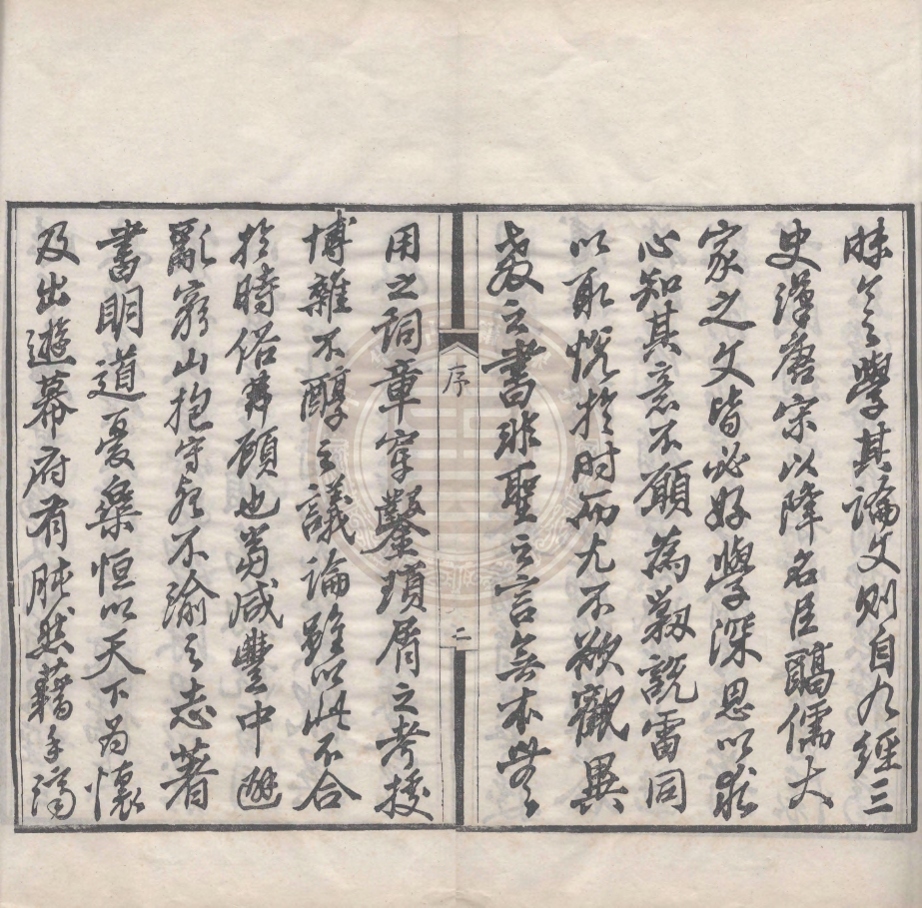 昧之學其論文則自九經三
史漢唐宋以降名臣碩儒大
家之文皆必好學深思以求
心知其意不願為剿說雷同
以取悅於時而尤不欲觀異
教之書非聖之言無本無
序
二
用之詞章穿鑿瑣屑之考據
博雜不醇之議論雖以此不合
於時俗弗顧也當咸豐中避
亂窮山抱守先不渝之志著
書明道憂樂恒以天下為懷
及出遊幕府有所藉手